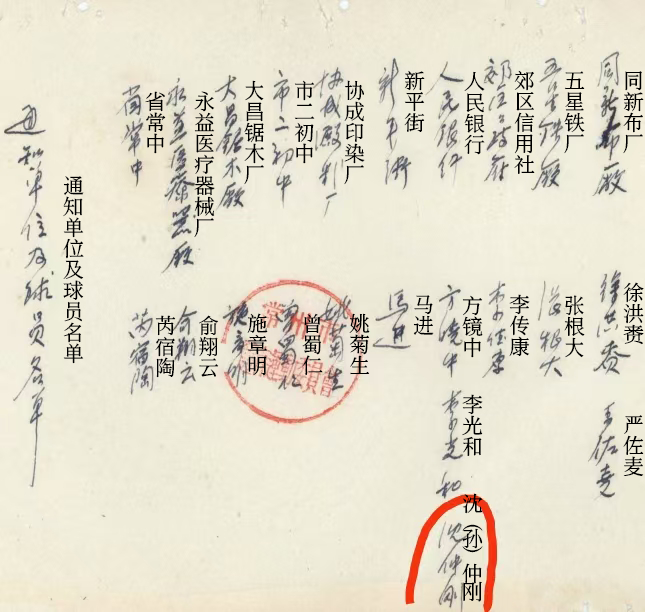 通知单位及球员名单
通知单位及球员名单
省常中
省常中
芮宿陶
芮宿陶
永益医療器廠
永益医疗器械厂
俞翔云
俞翔云
大昌锯木廠
大昌锯木厂
施章明
施章明
市二初中
市二初中
曾蜀仁
曾蜀仁
协成印染厂
姚菊生
姚菊生
新平街
新平街
馬进
马进
人民銀行
人民银行
方镜中
方镜中
李光和
李光和
沈仲刚
沈（孙）仲刚
郊区信用社
李传康
李传康
五星铁廠
五星铁厂
张根大
张根大
同新布廠
同新布厂
徐洪赉
徐洪赉
严佐麦
常州市